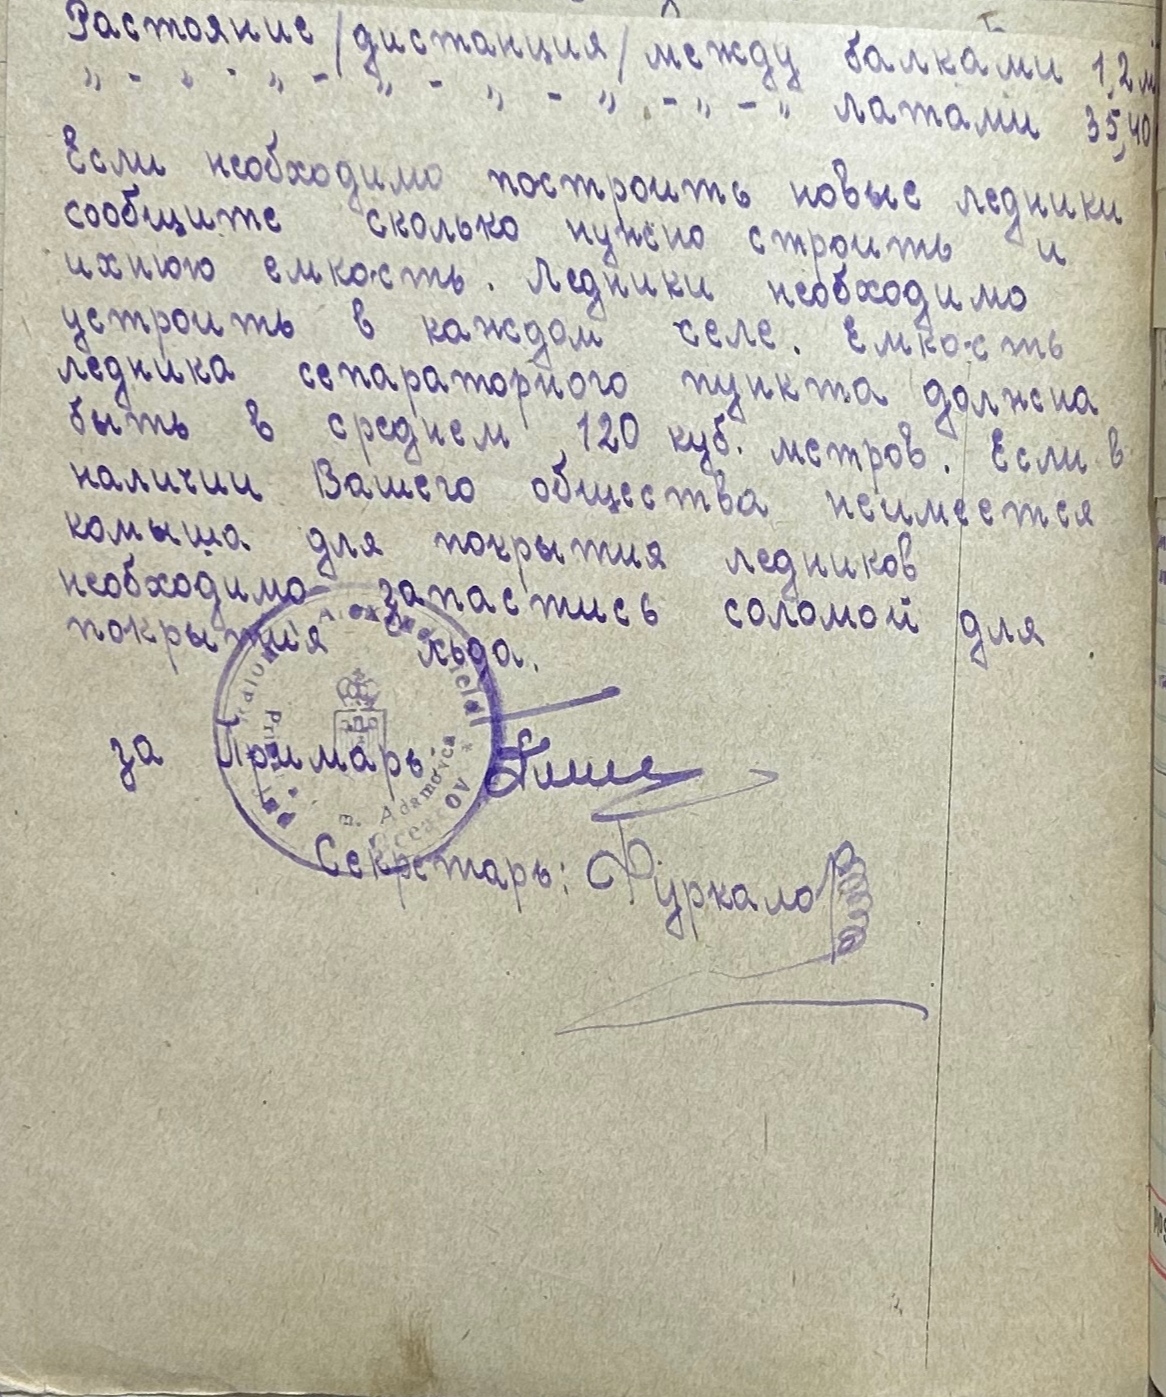 Растояние /дистанция/ между балками 1,2 м
„ - „ - „ - „ - „ - „ - „ - „ латами 35,40
Если необходимо построить новые ледники
сообщите сколько нужно строить и
ихнюю емкость. Ледники необходимо
устроить в каждом селе. Емкость
ледника сепараторного пункта должна
быть в среднем 120 куб. метров. Если в
наличии Вашего общества неимеется
комыша для покрытия ледников
необходимо запастись соломой для
покрытия льда.
за Примарь:
Секретарь: Фуркало
m. Adamovca